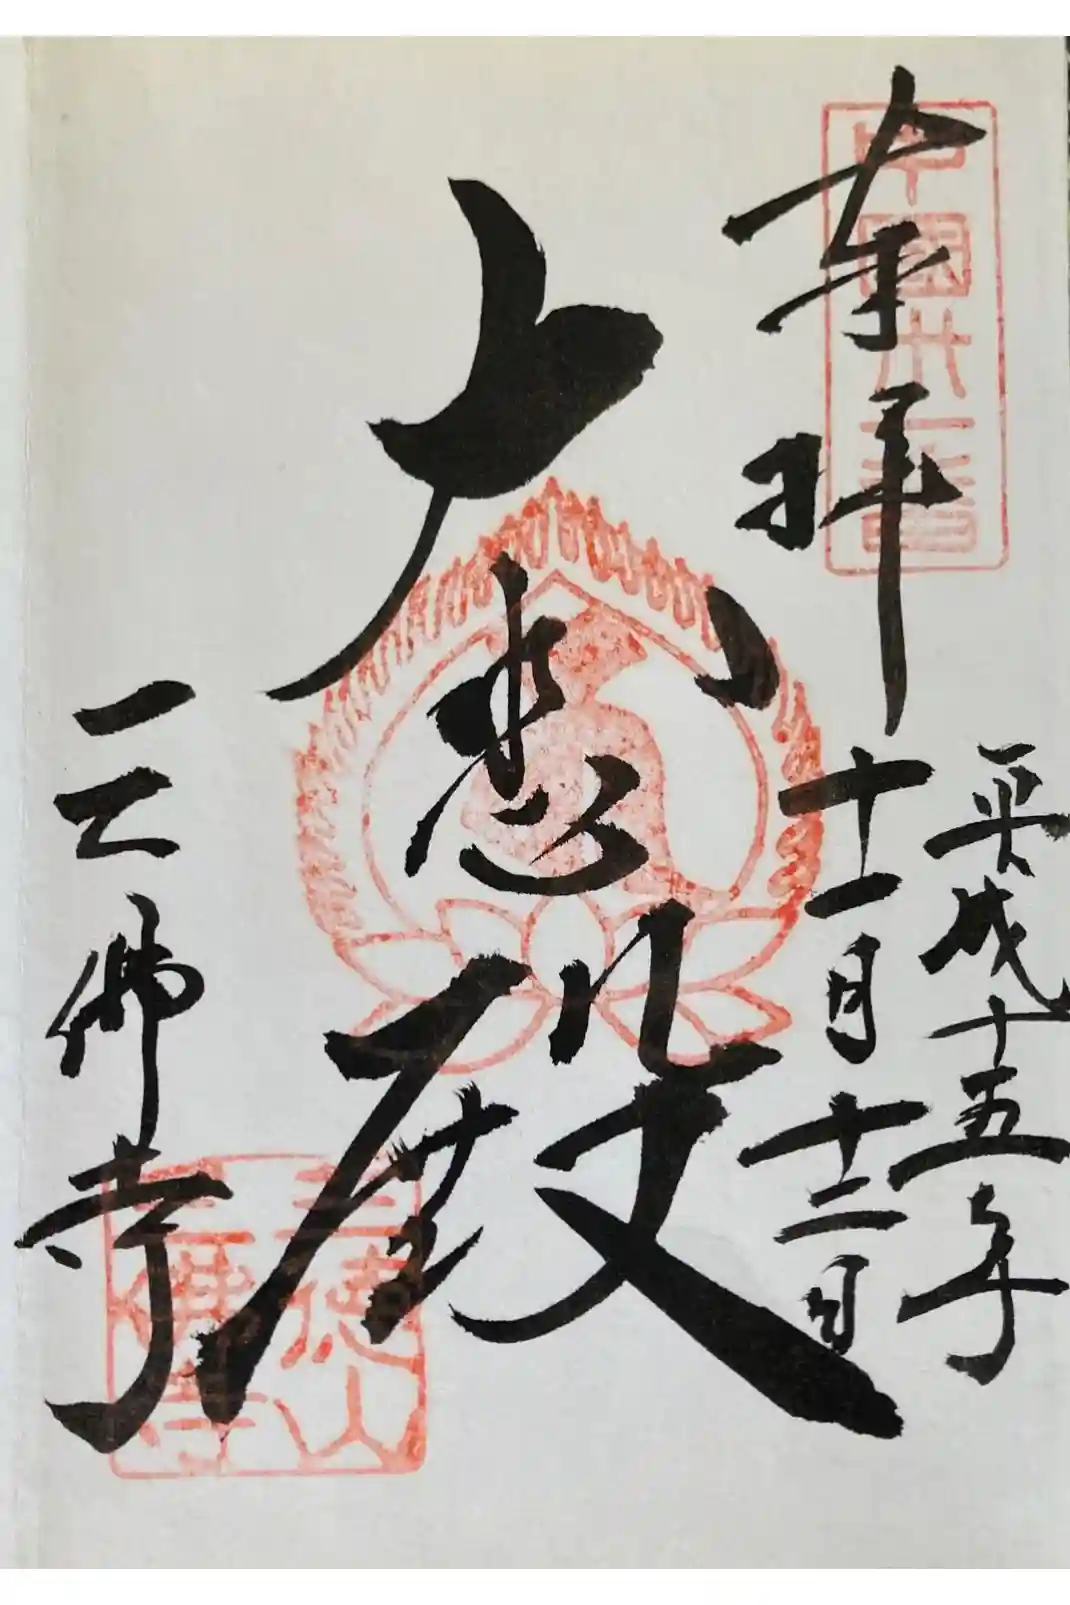 奉拝
中國卅一番
平成十五年
十一月十二日
大悲殿
三佛寺
三徳山
三佛寺